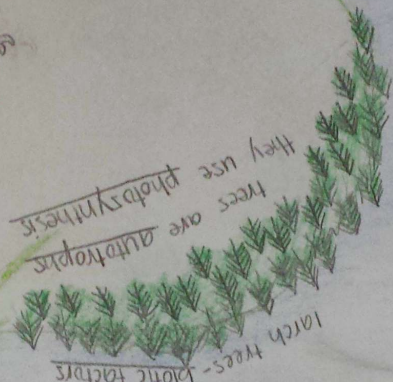 larch trees - biotic factors
trees are autotrophs
they use photosynthesis